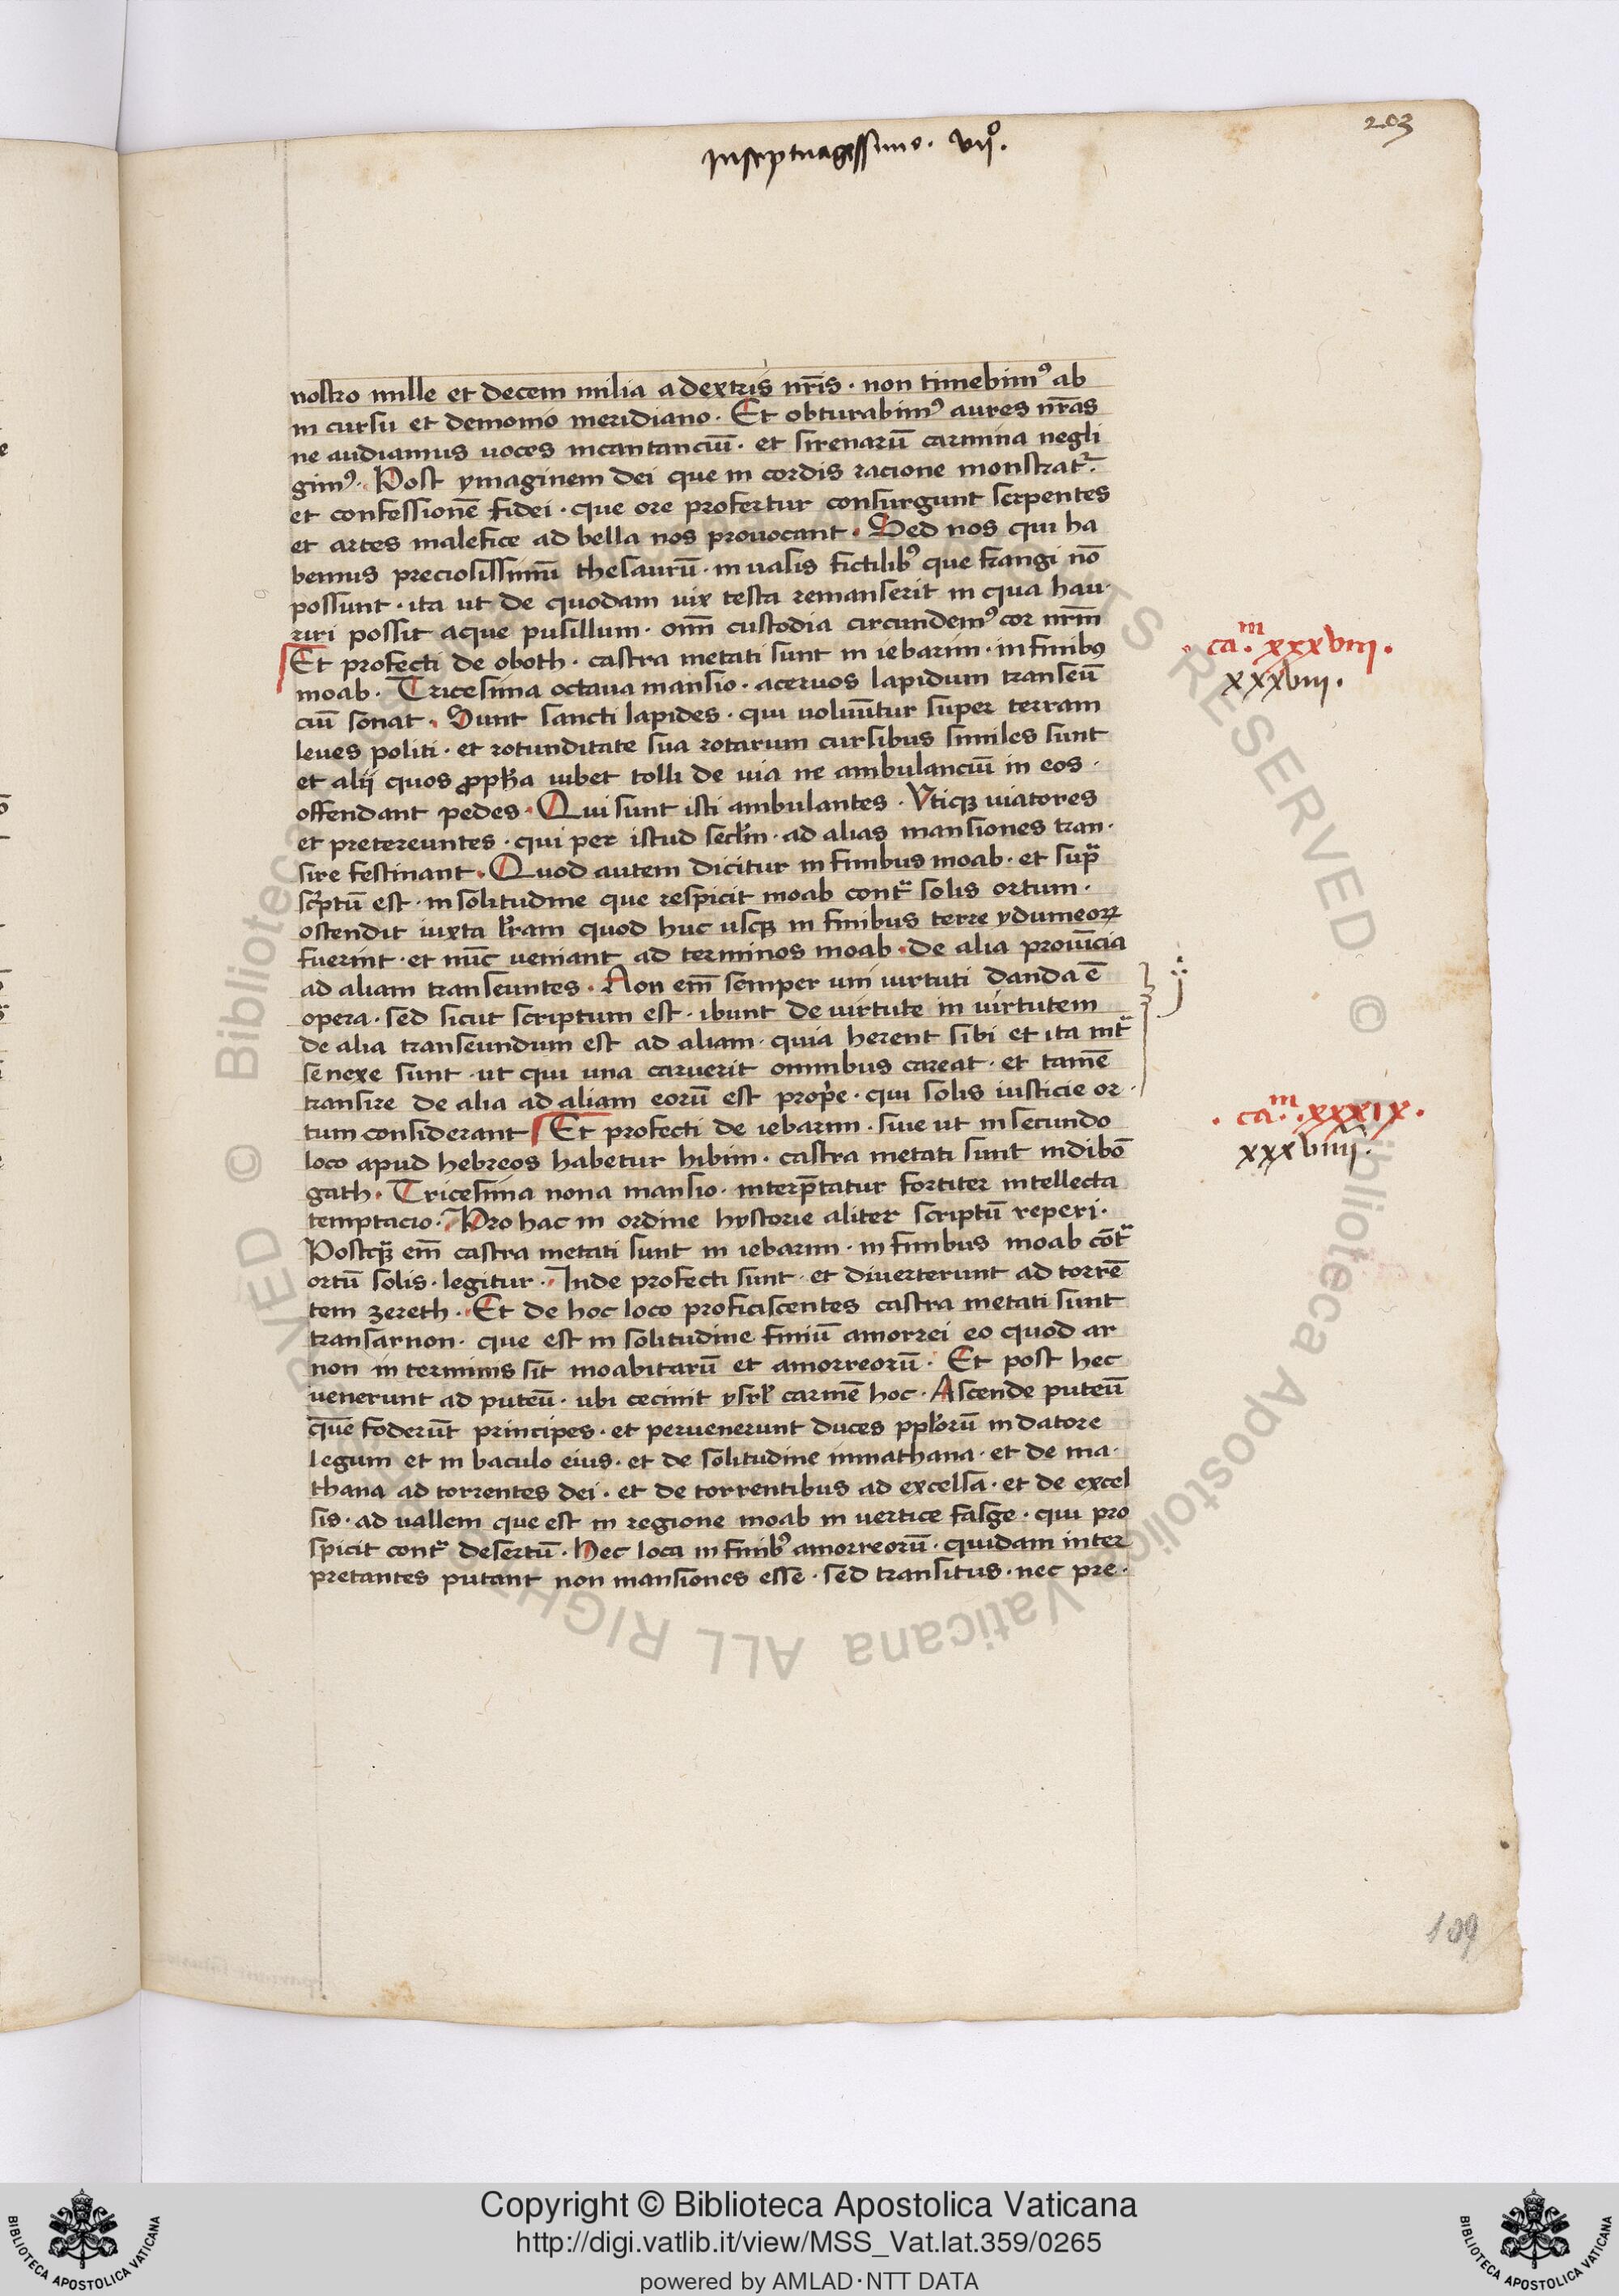 203
Inseptuagessimo. vijº.
nostro mille et decem milia a dextris nr̄is · non timebimꝰ ab
in cursu et demonio meridiano · Et obturabimꝰ aures nr̄as
ne audiamus uoces incantanciū · et sirenarū carmina negli
gimꝰ · Post ymaginem dei que in cordis racione monstrat᷑ ·
et confessionē fidei · que ore profertur consurgunt serpentes
et artes malefice ad bella nos prouocant · Sed nos qui ha
bemus preciosissimū thesaurū · in uasis fictilibꝰ que frangi nō
possunt · ita ut de quodam uix testa remanserit in qua hau·
riri possit aque pusillum · om̄i custodia circundemꝰ cor nr̄m
Et profecti de oboth · castra metati sunt in iebarim · in finibus
moab · Tricesima octaua mansio · aceruos lapidum transeū
ciū sonat · Sunt sancti lapides · qui uoluūtur super terram
leues politi · et rotunditate sua rotarum cursibus similes sunt
et alij quos ꝓph̄a iubet tolli de uia ne ambulanciū in eos ·
offendant pedes · Qui sunt isti ambulantes · Vtiqꝫ uiatores
et pretereuntes · qui per istud secl̄m · ad alias mansiones tran·
sire festinant · Quod autem dicitur in finibus moab · et sup̄
sc̄ptū est · in solitudine que respicit moab cont̄ solis ortum ·
ostendit iuxta l̄ram quod huc usqꝫ in finibus terre ydumeoꝝ
fuerint · et nūc ueniant ad terminos moab · de alia prouīcia
ad aliam transeuntes · Non em̄ semper uni uirtuti danda ē
opera · sed sicut scriptum est · ibunt de uirtute in uirtutem
de alia transeundum est ad aliam · quia herent sibi et ita int̄
se nexe sunt · ut qui una caruerit omnibus careat · et tamē
transire de alia ad aliam eorū est propr̄e · qui solis iusticie or·
tum considerant Et profecti de iebarim · siue ut in secundo
loco apud hebreos habetur hibim · castra metati sunt indibō
gath · Tricesima nona mansio · interp̄tatur fortiter intellecta
temptacio · Pro hac in ordine hystorie aliter scriptū reperi ·
Postqꝫ em̄ castra metati sunt in iebarim · in finibus moab cōt̄
ortū solis · legitur · Inde profecti sunt · et diuerterunt ad torrē
tem zereth · Et de hoc loco proficiscentes castra metati sunt
transarnon · que est in solitudine finiū amorrei eo quod ar
non in terminis sit moabitarū et amorreorū · Et post hec
uenerunt ad puteū · ubi cecinit ysrl̄ carmē hoc · Ascende puteū
quē foderūt principes · et peruenerunt duces ppl̄orū in datore
legum et in baculo eius · et de solitudine inmathana · et de ma·
thana ad torrentes dei · et de torrentibus ad excelsa · et de excel
sis · ad uallem que est in regione moab in uertice fasge · qui pro
spicit cont̄ desertū · Hec loca in finibꝰ amorreorū · quidam inter
pretantes putant non mansiones esse · sed transitus · nec pre·
· ca.ᵐ xxxviij ·
xxxviij ·
· ca.ᵐ · xxxix ·
xxxviiij ·
109
© Biblioteca Apostolica Vaticana ALL RIGHTS RESERVED
Copyright © Biblioteca Apostolica Vaticana
http://digi.vatlib.it/view/MSS_Vat.lat.359/0265
powered by AMLAD·NTT DATA
BIBLIOTECA APOSTOLICA VATICANA
BIBLIOTECA APOSTOLICA VATICANA